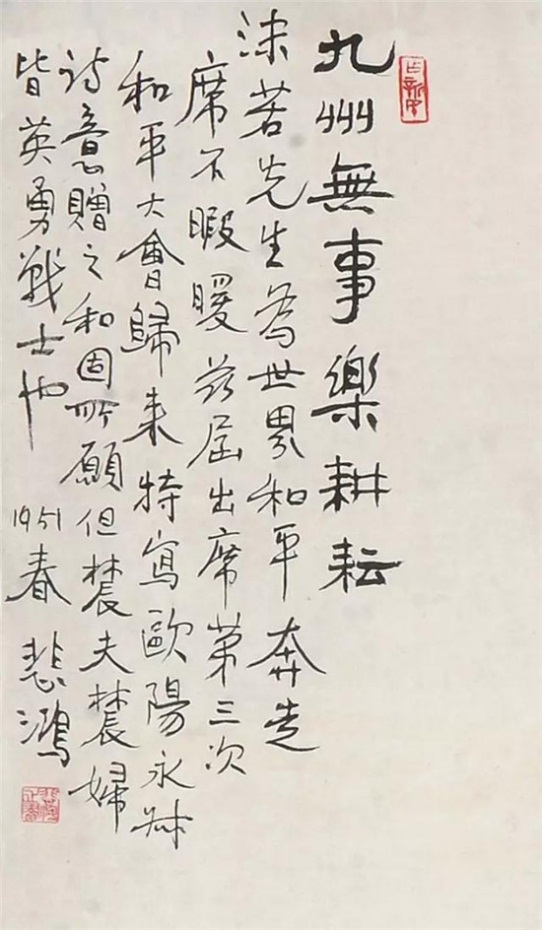 九州無事樂耕耘
沫若先生為世界和平奔走
席不暇暖茲屆出席第三次
和平大會歸来特寫歐陽永叔
詩意贈之和固所願但農夫農婦
皆英勇戰士也 1951春 悲鴻